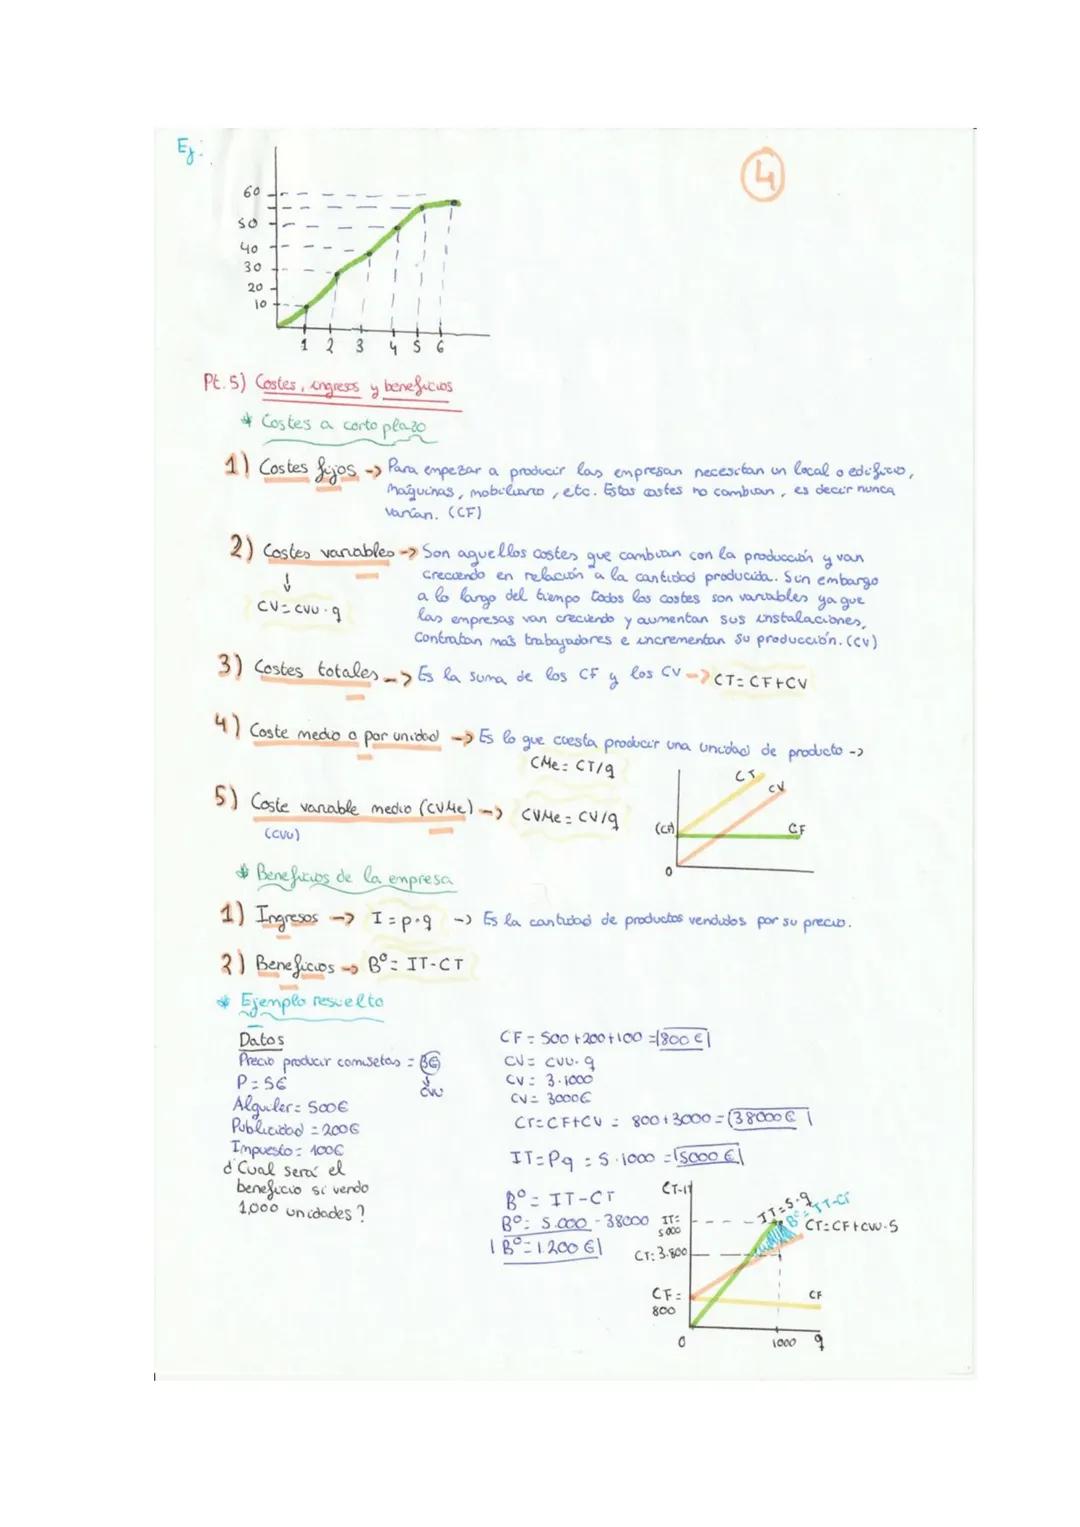 Ej:
4
60
50
40
30
20
10
1 2 3 4 5 6
Pt. 5) Costes, ingresos y beneficios
* Costes a corto plazo
1) Costes fijos -> Para empezar a producir las empresan necesitan un local o edificio,
máquinas, mobiliario, etc. Estos costes no cambian, es decir nunca
varían. (CF)
2) Costes variables -> Son aquellos costes que cambian con la producción y van
creciendo en relación a la cantidad producida. Sin embargo
a lo largo del tiempo todos los costes son variables ya que
las empresas van creciendo y aumentan sus instalaciones,
contratan más trabajadores e incrementan su producción. (CV)
↓
CV = CVU · q
3) Costes totales -> Es la suma de los CF y los CV -> CT = CF+CV
4) Coste medio o por unidad -> Es lo que cuesta producir una unidad de producto ->
CMe = CT/q
5) Coste variable medio (CVMe) -> CVMe = CV/q
(CVU)
CT
CV
(CF)
CF
0
* Beneficios de la empresa
1) Ingresos -> I = p·q -> Es la cantidad de productos vendidos por su precio.
2) Beneficios -> Bº = IT-CT
* Ejemplo resuelto
Datos
Precio producir camisetas = 3€
↓
CVU
P = 5€
Alquiler = 500€
Publicidad = 200€
Impuesto = 100€
¿Cual será el
beneficio si vendo
1,000 unidades?
CF = 500+200+100 = 800 €
CV = CVU·q
CV = 3·1000
CV = 3000€
CT=CF+CV = 800+3000 = 38000 €
IT=Pq = 5·1000 = 5000 €
Bº = IT-CT
Bº = 5.000 - 38000
Bº = 1.200 €
CT-IT
IT=5·q
Bº = IT-CT
IT=
5000
CT=CF+CVU·5
CT: 3.800
CF=
800
CF
0
1000
q